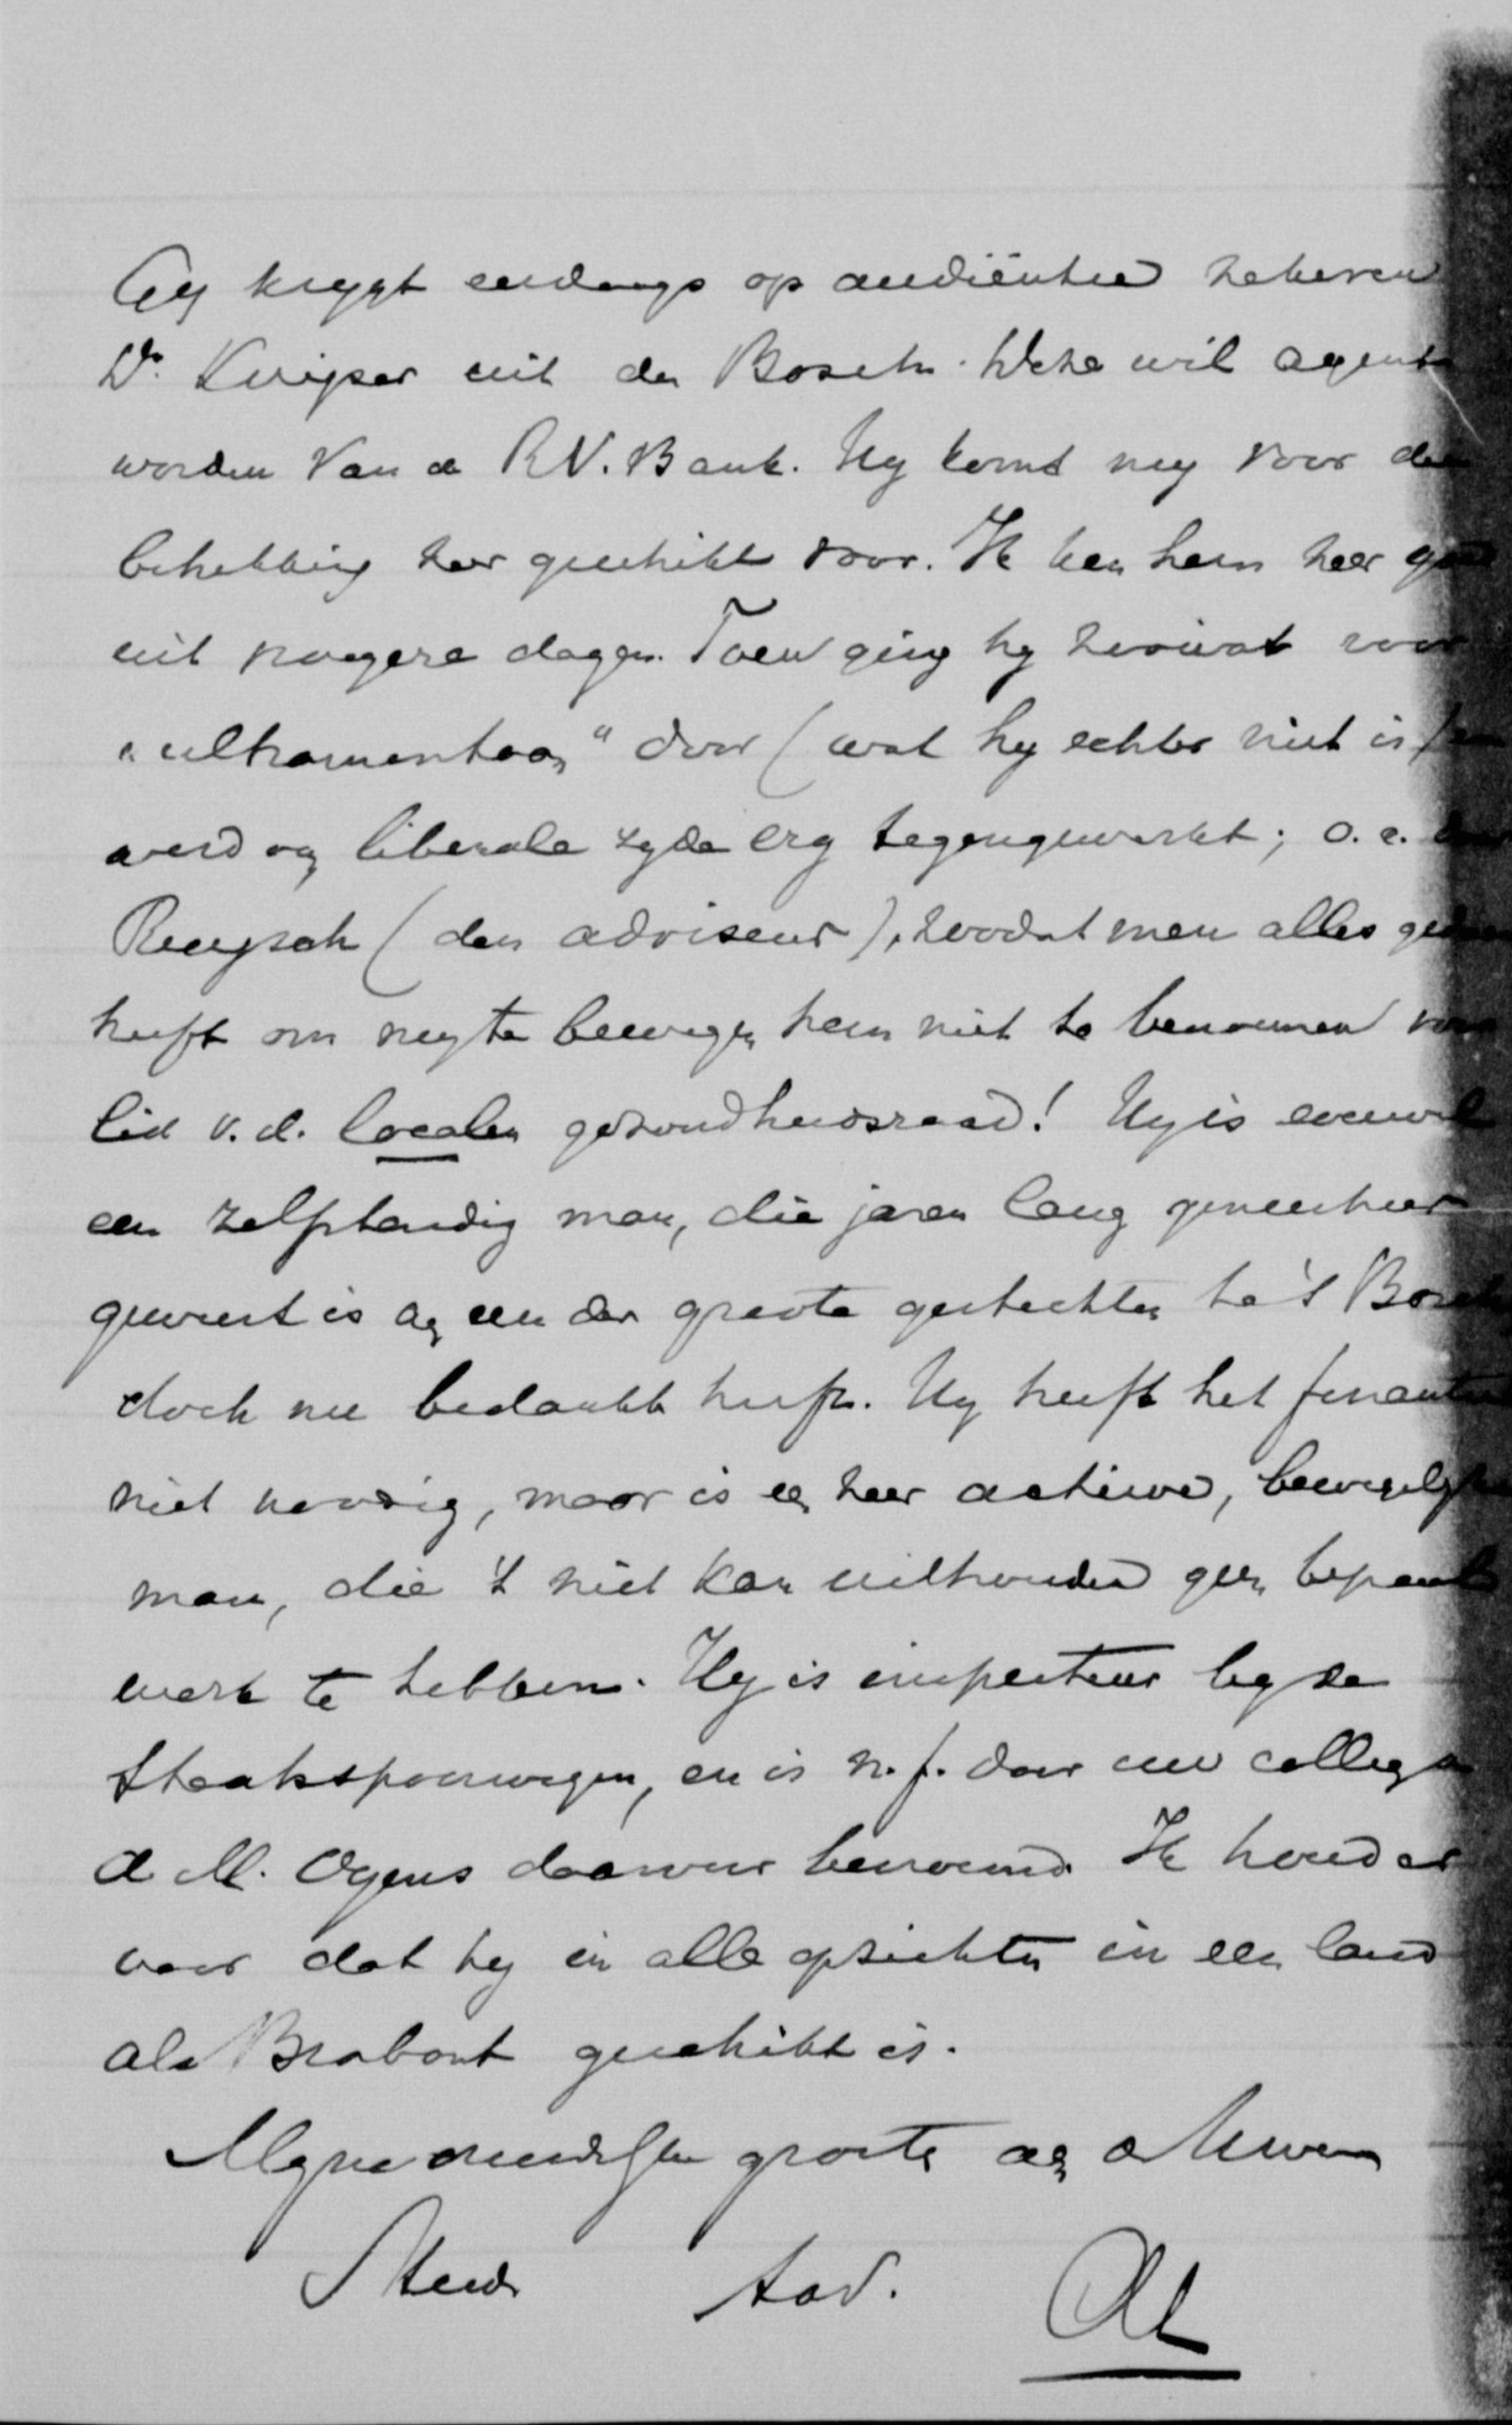 Gy krygt eerdaags op audiëntie zekeren
Dr. Kuijper uit den Bosch. Deze wil agent
worden van de RN. Bank. Hy komt my voor die
betrekking zeer geschikt voor. Ik ken hem zeer goed
uit vroegere dagen. Toen ging hy zoowat voor
"ultramontaan" door (wat hy echter niet is) en
werd van liberale zyde erg tegengewerkt; o.a. door
(den adviseur), zoodat men alles gedaan
heeft om my te bewegen hem niet te benoemen voor
lid v.d. localen gezondheidsraad! Hy is evenwel
een zelfstandig man, die jaren lang geneesheer
geweest is aan een der groote gestichten te 's Bosch
doch nu bedankt heeft. Hy heeft het
niet noodig, maar is een zeer actieve, bewegelyke
man, die 't niet kan uithouden geen bepaald
werk te hebben. Hy is inspecteur by de
Staatsspoorwegen, en is n.f. door uw collega
d M. Oyens daarvoor benoemd. Ik houd er
voor dat hy in alle opzichten in een land
als Brabant geschikt is.
Myne vriendschpl groeten aan de Uwen
Steeds tav.